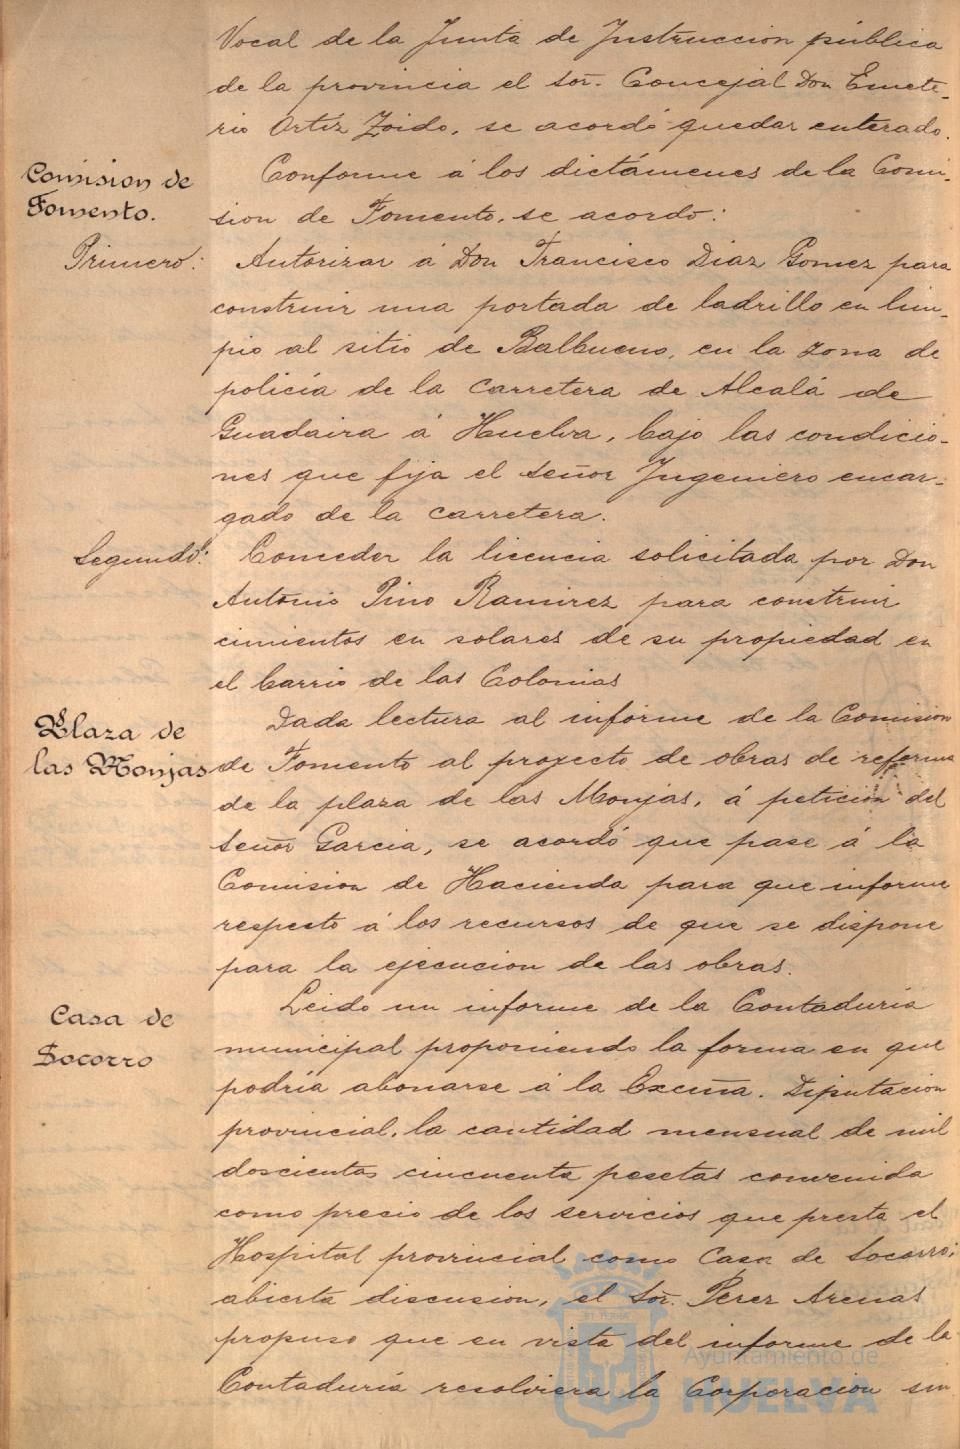 Vocal de la Junta de Instruccion pública
de la provincia el Sor. Concejal Don Emete-
rio Ortiz Zoido, se acordó quedar enterado.
Comision de
Fomento.
Conforme á los dictámenes de la Comi-
sion de Fomento, se acordo:
Primero:
Autorizar á Don Francisco Diaz Gomez para
construir una portada de ladrillo en lim-
pio al sitio de Balbueno, en la zona de
policía de la carretera de Alcalá de
Guadaira á Huelva, bajo las condicio-
nes que fija el Señor Ingeniero encar-
gado de la carretera.
Segundo:
Conceder la licencia solicitada por Don
Antonio Pino Ramirez para construir
cimientos en solares de su propiedad en
el barrio de las Colonias
Plaza de
las Monjas
Dada lectura al informe de la Comision
de Fomento al proyecto de obras de reforma
de la plaza de las Monjas, á peticion del
Señor Garcia, se acordó que pase á la
Comision de Hacienda para que informe
respecto á los recursos de que se dispone
para la ejecucion de las obras.
Casa de
Socorro
Leido un informe de la Contaduria
municipal proponiendo la forma en que
podría abonarse á la Excma. Diputacion
provincial, la cantidad mensual de mil
doscientas cincuenta pesetas convenida
como precio de los servicios que presta el
Hospital provincial como Casa de Socorro;
abierta discusion, el Sor. Perez Arenas
propuso que en vista del informe de la
Contaduría resolviera la Corporacion sin
Ayuntamiento de
HUELVA